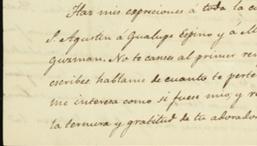 Haz mis expreciones á toda la
S. Agustin á Gualupe Espino y á
guzman. No te canses al primer
escribes hablame de cuanto te
me interesa como si fuese mio, y
la ternura y gratitud de tu